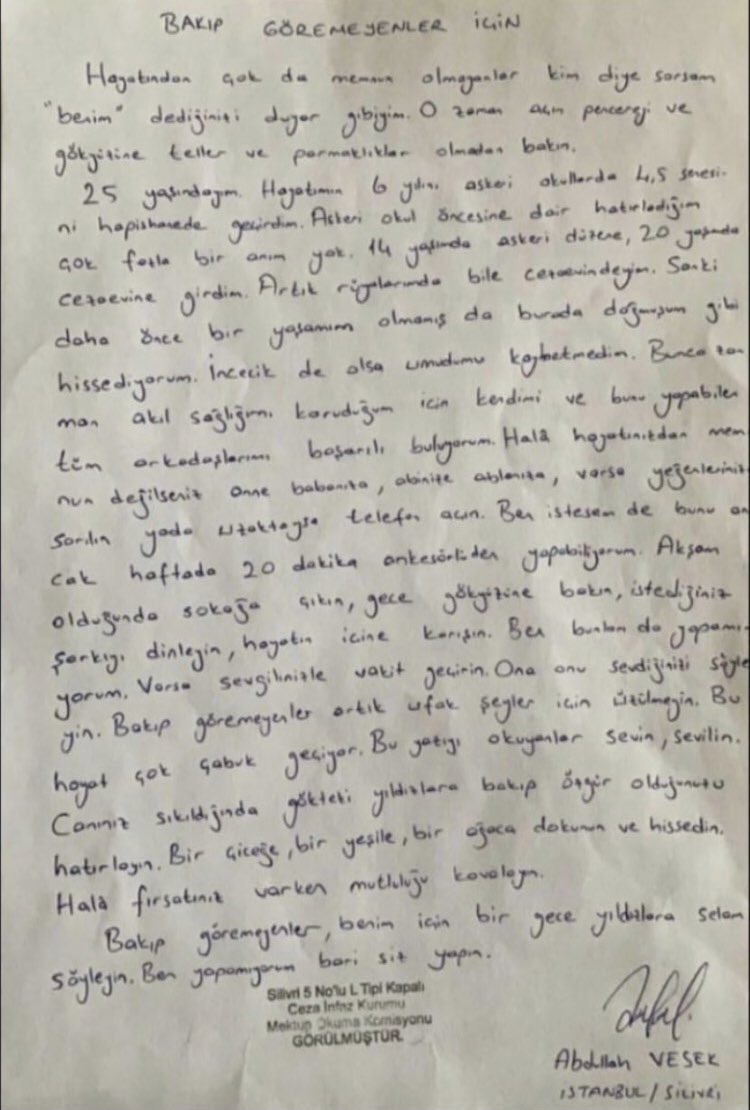 BAKIP GÖREMEYENLER İÇİN
Hayatından çok da memnun olmayanlar kim diye sorsam
"benim" dediğinizi duyar gibiyim. O zaman açın pencereyi ve
gökyüzüne teller ve parmaklıklar olmadan bakın.
25 yaşındayım. Hayatımın 6 yılını askeri okullarda 4,5 senesi-
ni hapishanede geçirdim. Askeri okul öncesine dair hatırladığım
çok fazla bir anım yok. 14 yaşında askeri düzene, 20 yaşında
cezaevine girdim. Artık rüyalarımda bile cezaevindeyim. Sanki
daha önce bir yaşamım olmamış da burada doğmuşum gibi
hissediyorum. İncecik de olsa umudumu kaybetmedim. Bunca za-
man akıl sağlığımı koruduğum için kendimi ve bunu yapabilen
tüm arkadaşlarımı başarılı buluyorum. Halâ hayatınızdan mem-
nun değilseniz anne babanıza, abinize ablanıza, varsa yeğenlerinize
sarılın yada uzaktaysa telefon açın. Ben istesem de bunu an-
cak haftada 20 dakika ankesörlüden yapabiliyorum. Akşam
olduğunda sokağa çıkın, gece gökyüzüne bakın, istediğiniz
şarkıyı dinleyin, hayatın içine karışın. Ben bunları da yapamı-
yorum. Varsa sevgilinizle vakit geçirin. Ona onu sevdiğinizi söyle-
yin. Bakıp göremeyenler artık ufak şeyler için üzülmeyin. Bu
hayat çok çabuk geçiyor. Bu yazıyı okuyanlar sevin, sevilin.
Canınız sıkıldığında gökteki yıldızlara bakıp özgür olduğunuzu
hatırlayın. Bir çiçeğe, bir yeşile, bir ağaca dokunun ve hissedin.
Halâ fırsatınız varken mutluluğu kovalayın.
Bakıp göremeyenler, benim için bir gece yıldızlara selam
söyleyin. Ben yapamıyorum bari siz yapın.
Silivri 5 No'lu L Tipi Kapalı
Ceza İnfaz Kurumu
Mektup Okuma Komisyonu
GÖRÜLMÜŞTÜR.
Abdullah VESEK
İSTANBUL / SİLİVRİ